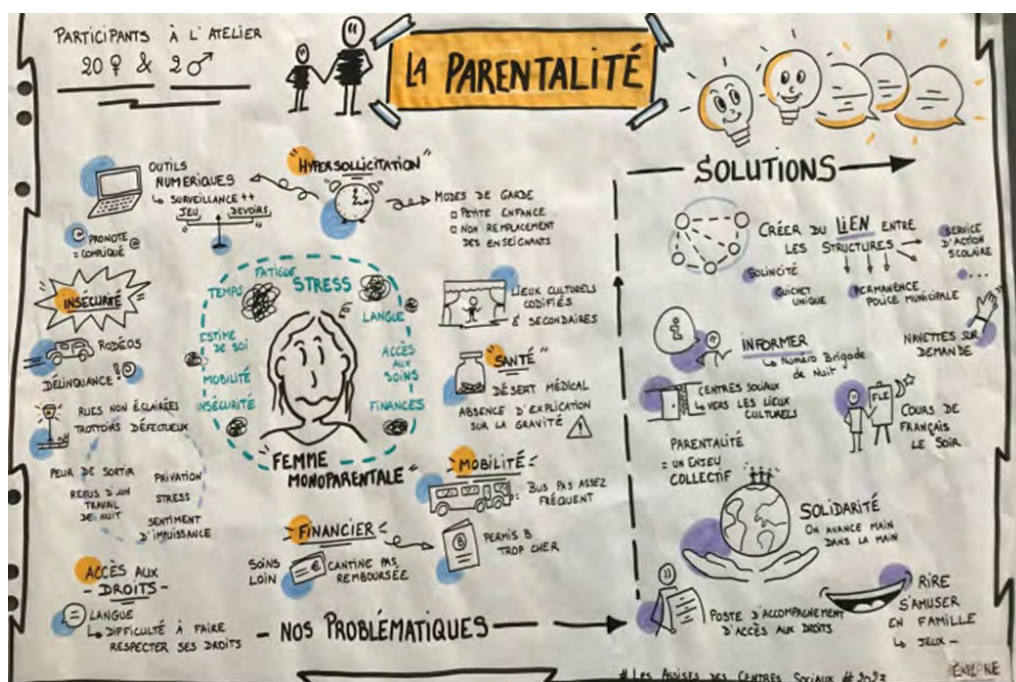 PARTICIPANTS À L'ATELIER
20 ♀ & 2 ♂
LA PARENTALITÉ
"HYPERSOLLICITATION"
OUTILS
NUMERIQUES
↳ SURVEILLANCE ++
JEU DEVOIRS
@ PRONOTE @
= COMPLIQUÉ
MODES DE GARDE
□ PETITE ENFANCE
□ NON REMPLACEMENT
DES ENSEIGNANTS
INSÉCURITÉ
RODÉOS
DÉLINQUANCE !
RUES NON ÉCLAIRÉES
TROTTOIRS DÉFECTUEUX
PEUR DE SORTIR
REFUS D'UN
TRAVAIL
DE NUIT
PRIVATION
STRESS
SENTIMENT
D'IMPUISSANCE
FATIGUE
STRESS
TEMPS
LANGUE
ESTIME
DE SOI
ACCÈS
AUX
SOINS
MOBILITÉ
INSÉCURITÉ
FINANCES
"FEMME
MONOPARENTALE"
LIEUX CULTURELS
CODIFIÉS
& SECONDAIRES
"SANTÉ"
DÉSERT MÉDICAL
ABSENCE D'EXPLICATION
SUR LA GRAVITÉ
MOBILITÉ
= BUS PAS ASSEZ
FRÉQUENT
FINANCIER
SOINS
LOIN
€
CANTINE PAS
REMBOURSÉE
B
PERMIS B
TROP CHER
ACCÈS AUX
- DROITS -
LANGUE
↳ DIFFICULTÉ À FAIRE
RESPECTER SES DROITS
- NOS PROBLÉMATIQUES
SOLUTIONS
CRÉER DU LIEN ENTRE
LES STRUCTURES
SERVICE
D'ACTION
SCOLAIRE
...
GUICHET
UNIQUE
PERMANENCE
POLICE MUNICIPALE
i
INFORMER
↳ Numéro Brigade
de Nuit
NAVETTES SUR
DEMANDE
CENTRES SOCIAUX
↳ VERS LES LIEUX
CULTURELS
FLE
COURS DE
FRANÇAIS
LE SOIR
PARENTALITÉ
= UN ENJEU
COLLECTIF
SOLIDARITÉ
ON AVANCE MAIN
DANS LA MAIN
POSTE D'ACCOMPAGNEMENT
D'ACCÈS AUX DROITS
RIRE
S'AMUSER
EN FAMILLE
↳ JEUX -
# LES ASSISES DES CENTRES SOCIAUX